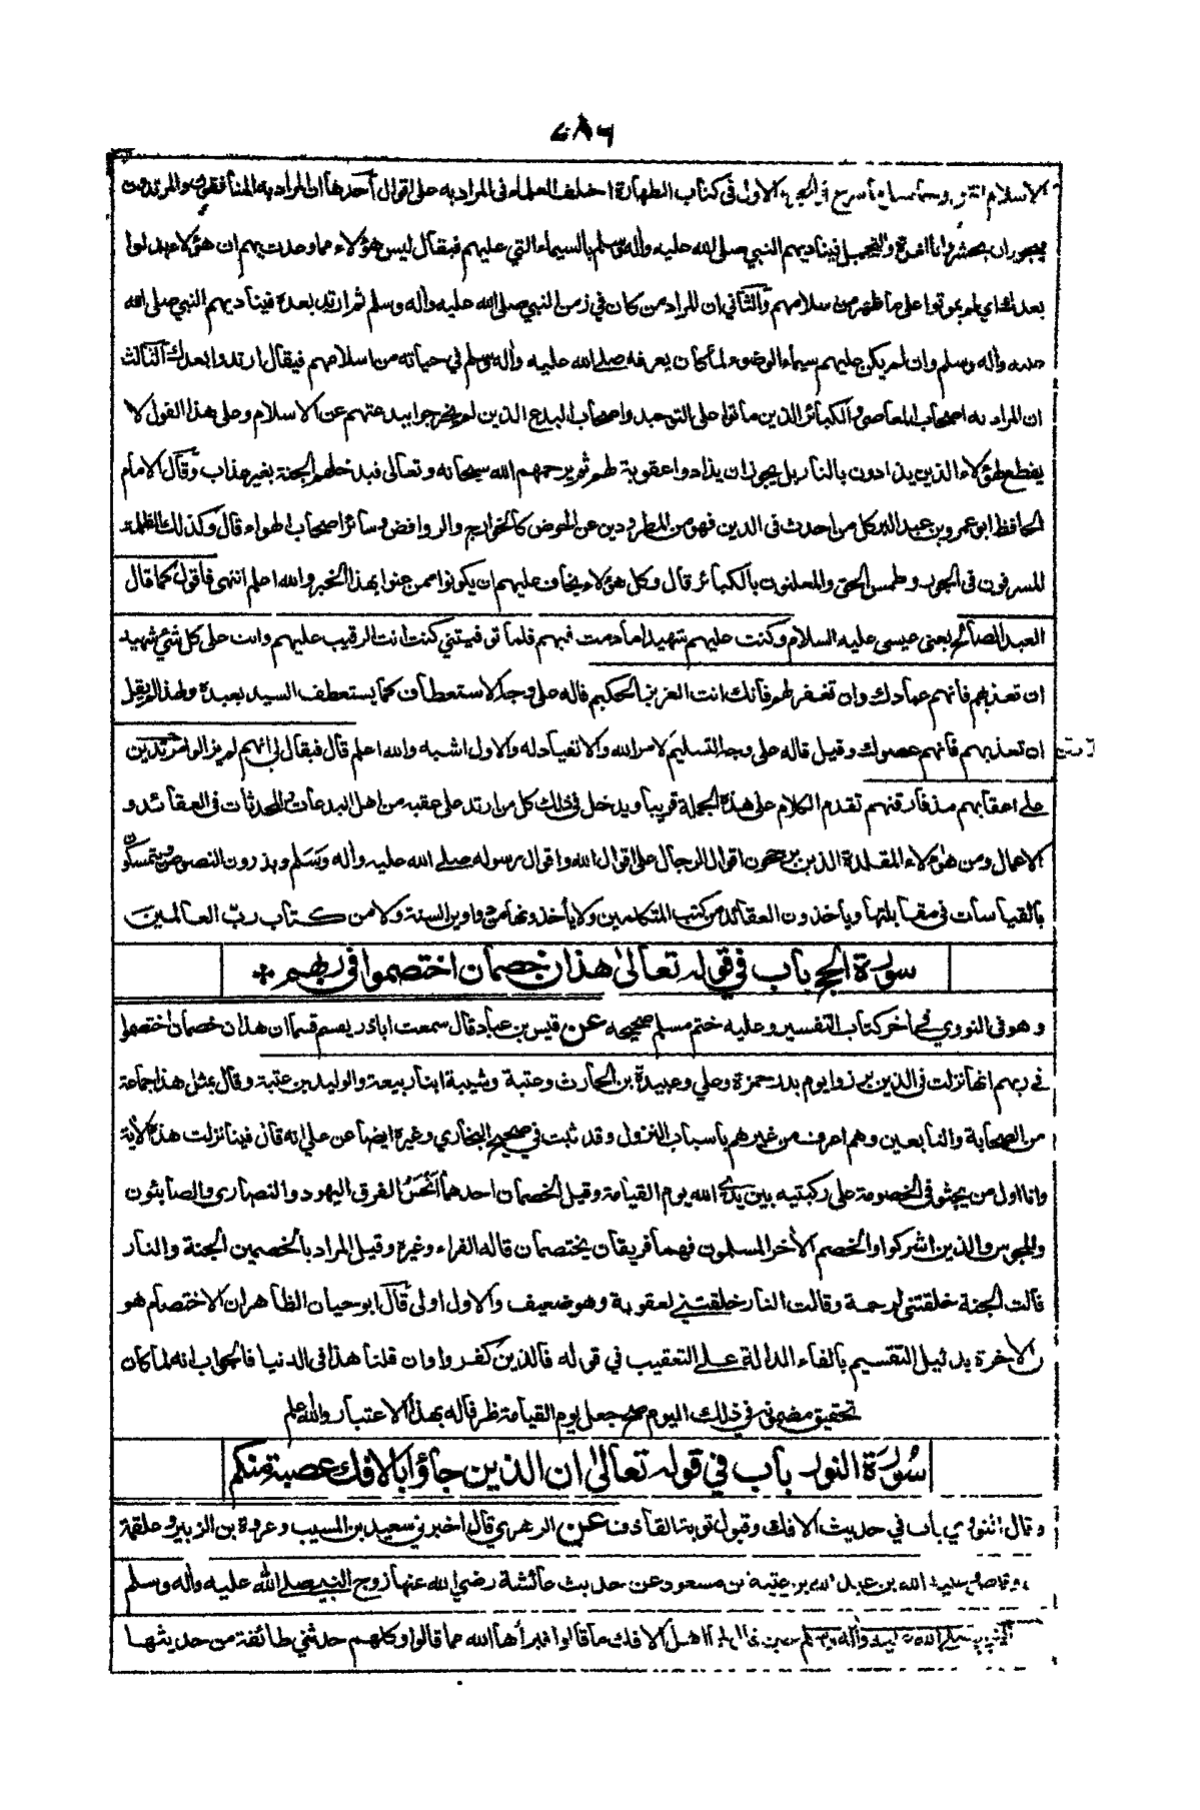 ٧٨٦
الاسلام انتهى في الجزء الاول فى كتاب الطهارة اختلف العلماء فى المراد به على اقوال أحدها ان المراد به المنافقون والمرتدون
فيجوز ان يحشروا بالغرة والتحجيل فيناديهم النبي صلى الله عليه وأله وسلم بالسيماء التي عليهم فيقال ليس هؤلاء مما وعدت بهم ان هؤلاء بدلوا
بعدك اي لم يموتوا على ما ظهر من سلامهم والثاني ان المراد من كان في زمن النبي صلى الله عليه وأله وسلم ثم ارتد بعده فيناديهم النبي صلى الله
عليه وأله وسلم وان لم يكن عليهم سيماء الوضوء لما كان يعرفه صلى الله عليه وأله وسلم في حياته من اسلامهم فيقال ارتدوا بعدك الثالث
ان المراد به اصحاب المعاصى والكبائر الذين ماتوا على التوحيد واصحاب البدع الذين لم يخرجوا ببدعتهم عن الاسلام وعلى هذا القول لا
يقطع لهؤلاء الذين يذادون بالنار بل يجوز ان يذادوا عقوبة لهم ثم يرحمهم الله سبحانه وتعالى فيدخلهم الجنة بغير عذاب وقال الامام
الحافظ ابو عمرو بن عبد البر كل من احدث فى الدين فهو من المطرودين عن الحوض كالخوارج والروافض وسائر اصحاب الهواء قال وكذلك الظلمة
المسرفون فى الجور وطمس الحق والمعلنون بالكبائر قال وكل هؤلاء يخاف عليهم ان يكونوا ممن عنوا بهذا الخبر والله اعلم انتهى فاقول كما قال
العبد الصالح يعنى عيسى عليه السلام وكنت عليهم شهيدا ما دمت فيهم فلما توفيتني كنت انت الرقيب عليهم وانت على كل شئ شهيد
ان تعذبهم فانهم عبادك وان تغفر لهم فانك انت العزيز الحكيم قاله على وجه الاستعطاف كما يستعطف السيد بعبده ولهذا لم يقل
ان تعذبهم فانهم عصوك وقيل قاله على وجه التسليم لامر الله والانقياد له والاول اشبه والله اعلم قال فيقال لي انهم لم يزالوا مرتدين
على اعقابهم مذ فارقتهم تقدم الكلام على هذه الجملة قريبا ويدخل فى ذلك كل من ارتد على عقبه من اهل البدعات والمحدثات فى العقائد و
الاعمال ومن هؤلاء المقلدة الذين يرجحون اقوال الرجال على اقوال الله واقوال رسوله صلى الله عليه وأله وسلم ويذرون النصوص ويتمسكون
بالقياسات فى مقابلتها ويأخذون العقائد من كتب المتكلمين ولا يأخذونها من دواوين السنة ولا من كتاب رب العالمين
سورة الحج باب في قوله تعالى هذان خصمان اختصموا فى ربهم
وهو فى النووي في أخر كتاب التفسير وعليه ختم مسلم صحيحه عن قيس بن عباد قال سمعت اباذر يقسم قسما ان هذان خصمان اختصموا
في ربهم انها نزلت فى الذين برزوا يوم بدر حمزة وعلي وعبيدة بن الحارث وعتبة وشيبة ابنا ربيعة والوليد بن عتبة وقال بمثل هذا جماعة
من الصحابة والتابعين وهم اعرف من غيرهم باسباب النزول وقد ثبت في صحيح البخاري وغيره ايضا عن علي انه قال فينا نزلت هذه الأية
وانا اول من يجثو فى الخصومة على ركبتيه بين يدي الله يوم القيامة وقيل الخصمان احدهما انجس الفرق اليهود والنصارى والصابئون
والمجوس والذين اشركوا والخصم الأخر المسلمون فهما فريقان يختصمان قاله الفراء وغيره وقيل المراد بالخصمين الجنة والنار
قالت الجنة خلقتنى لرحمة وقالت النار خلقتني لعقوبة وهو ضعيف والاول اولى قال ابو حيان الظاهر ان الاختصام هو
فى الأخرة بدليل التقسيم بالفاء الدالة على التعقيب في قوله فالذين كفروا وان قلنا هذا فى الدنيا فالجواب انه لما كان
تحقيق مضمونه في ذلك اليوم صح جعل يوم القيامة ظرفا له بهذا الاعتبار والله اعلم
سورة النور باب في قوله تعالى ان الذين جاؤا بالافك عصبة منكم
وقال النووي باب في حديث الافك وقبول توبة القاذف عن الزهري قال اخبرني سعيد بن المسيب وعروة بن الزبير وعلقمة
بن وقاص الله بن عبد الله بن عتبة بن مسعود عن حديث عائشة رضي الله عنها زوج النبي صلى الله عليه وأله وسلم
صلى الله عليه وأله وسلم حين قال لها اهل الافك ما قالوا فبرأها الله مما قالوا وكلهم حدثني طائفة من حديثها